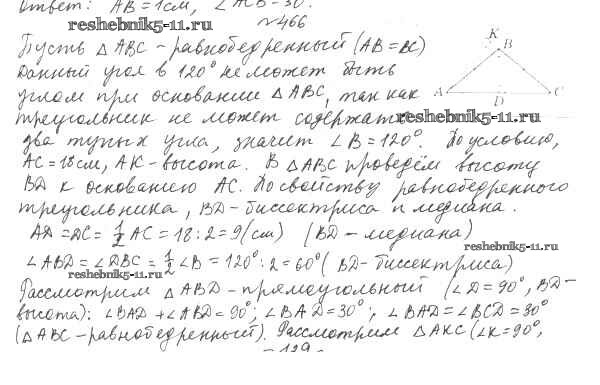 Ответ: AB = 1см, ∠ACB = 30°.
reshebnik5-11.ru
№466
Пусть △ABC - равнобедренный (AB = BC)
Данный угол в 120° не может быть
углом при основании △ABC, так как
треугольник не может содержать
reshebnik5-11.ru
два тупых угла, значит ∠B = 120°. По условию,
AC = 18см, AK - высота. В △ABC проведём высоту
BD к основанию AC. По свойству равнобедренного
треугольника, BD - биссектриса и медиана.
AD = DC = 1/2 AC = 18 : 2 = 9 (см) (BD - медиана)
reshebnik5-11.ru
∠ABD = ∠DBC = 1/2 ∠B = 120° : 2 = 60° (BD - биссектриса)
reshebnik5-11.ru
Рассмотрим △ABD - прямоугольный (∠D = 90°, BD -
высота): ∠BAD + ∠ABD = 90°; ∠BAD = 30°; ∠BAD = ∠BCD = 30°
(△ABC - равнобедренный). Рассмотрим △AKC (∠K = 90°,
- 129 -
K
B
A
D
C